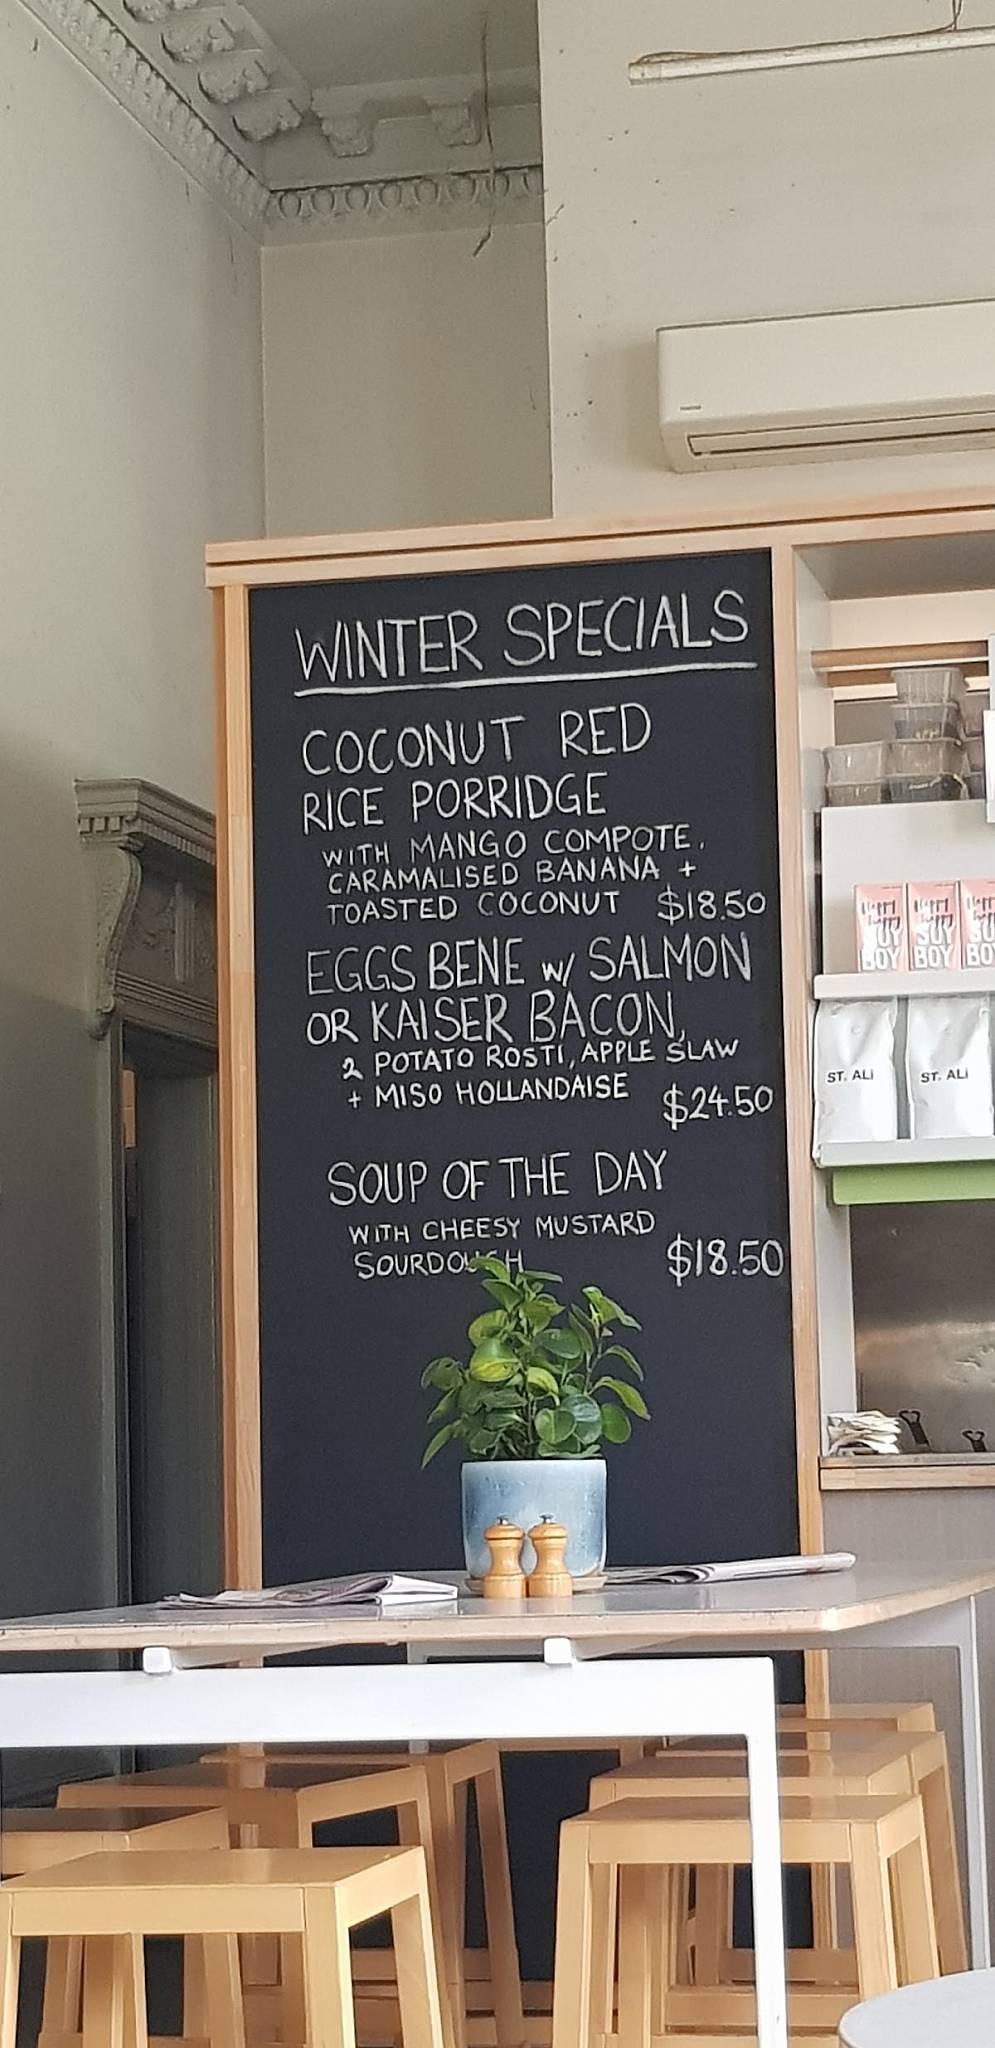 WINTER SPECIALS
COCONUT RED
RICE PORRIDGE
WITH MANGO COMPOTE,
CARAMALISED BANANA +
TOASTED COCONUT $18.50
EGGS BENE W/ SALMON
OR KAISER BACON,
2 POTATO ROSTI, APPLE SLAW
+ MISO HOLLANDAISE $24.50
SOUP OF THE DAY
WITH CHEESY MUSTARD
SOURDOUGH $18.50
SUY BOY
SUY BOY
ST. ALi
ST. ALi